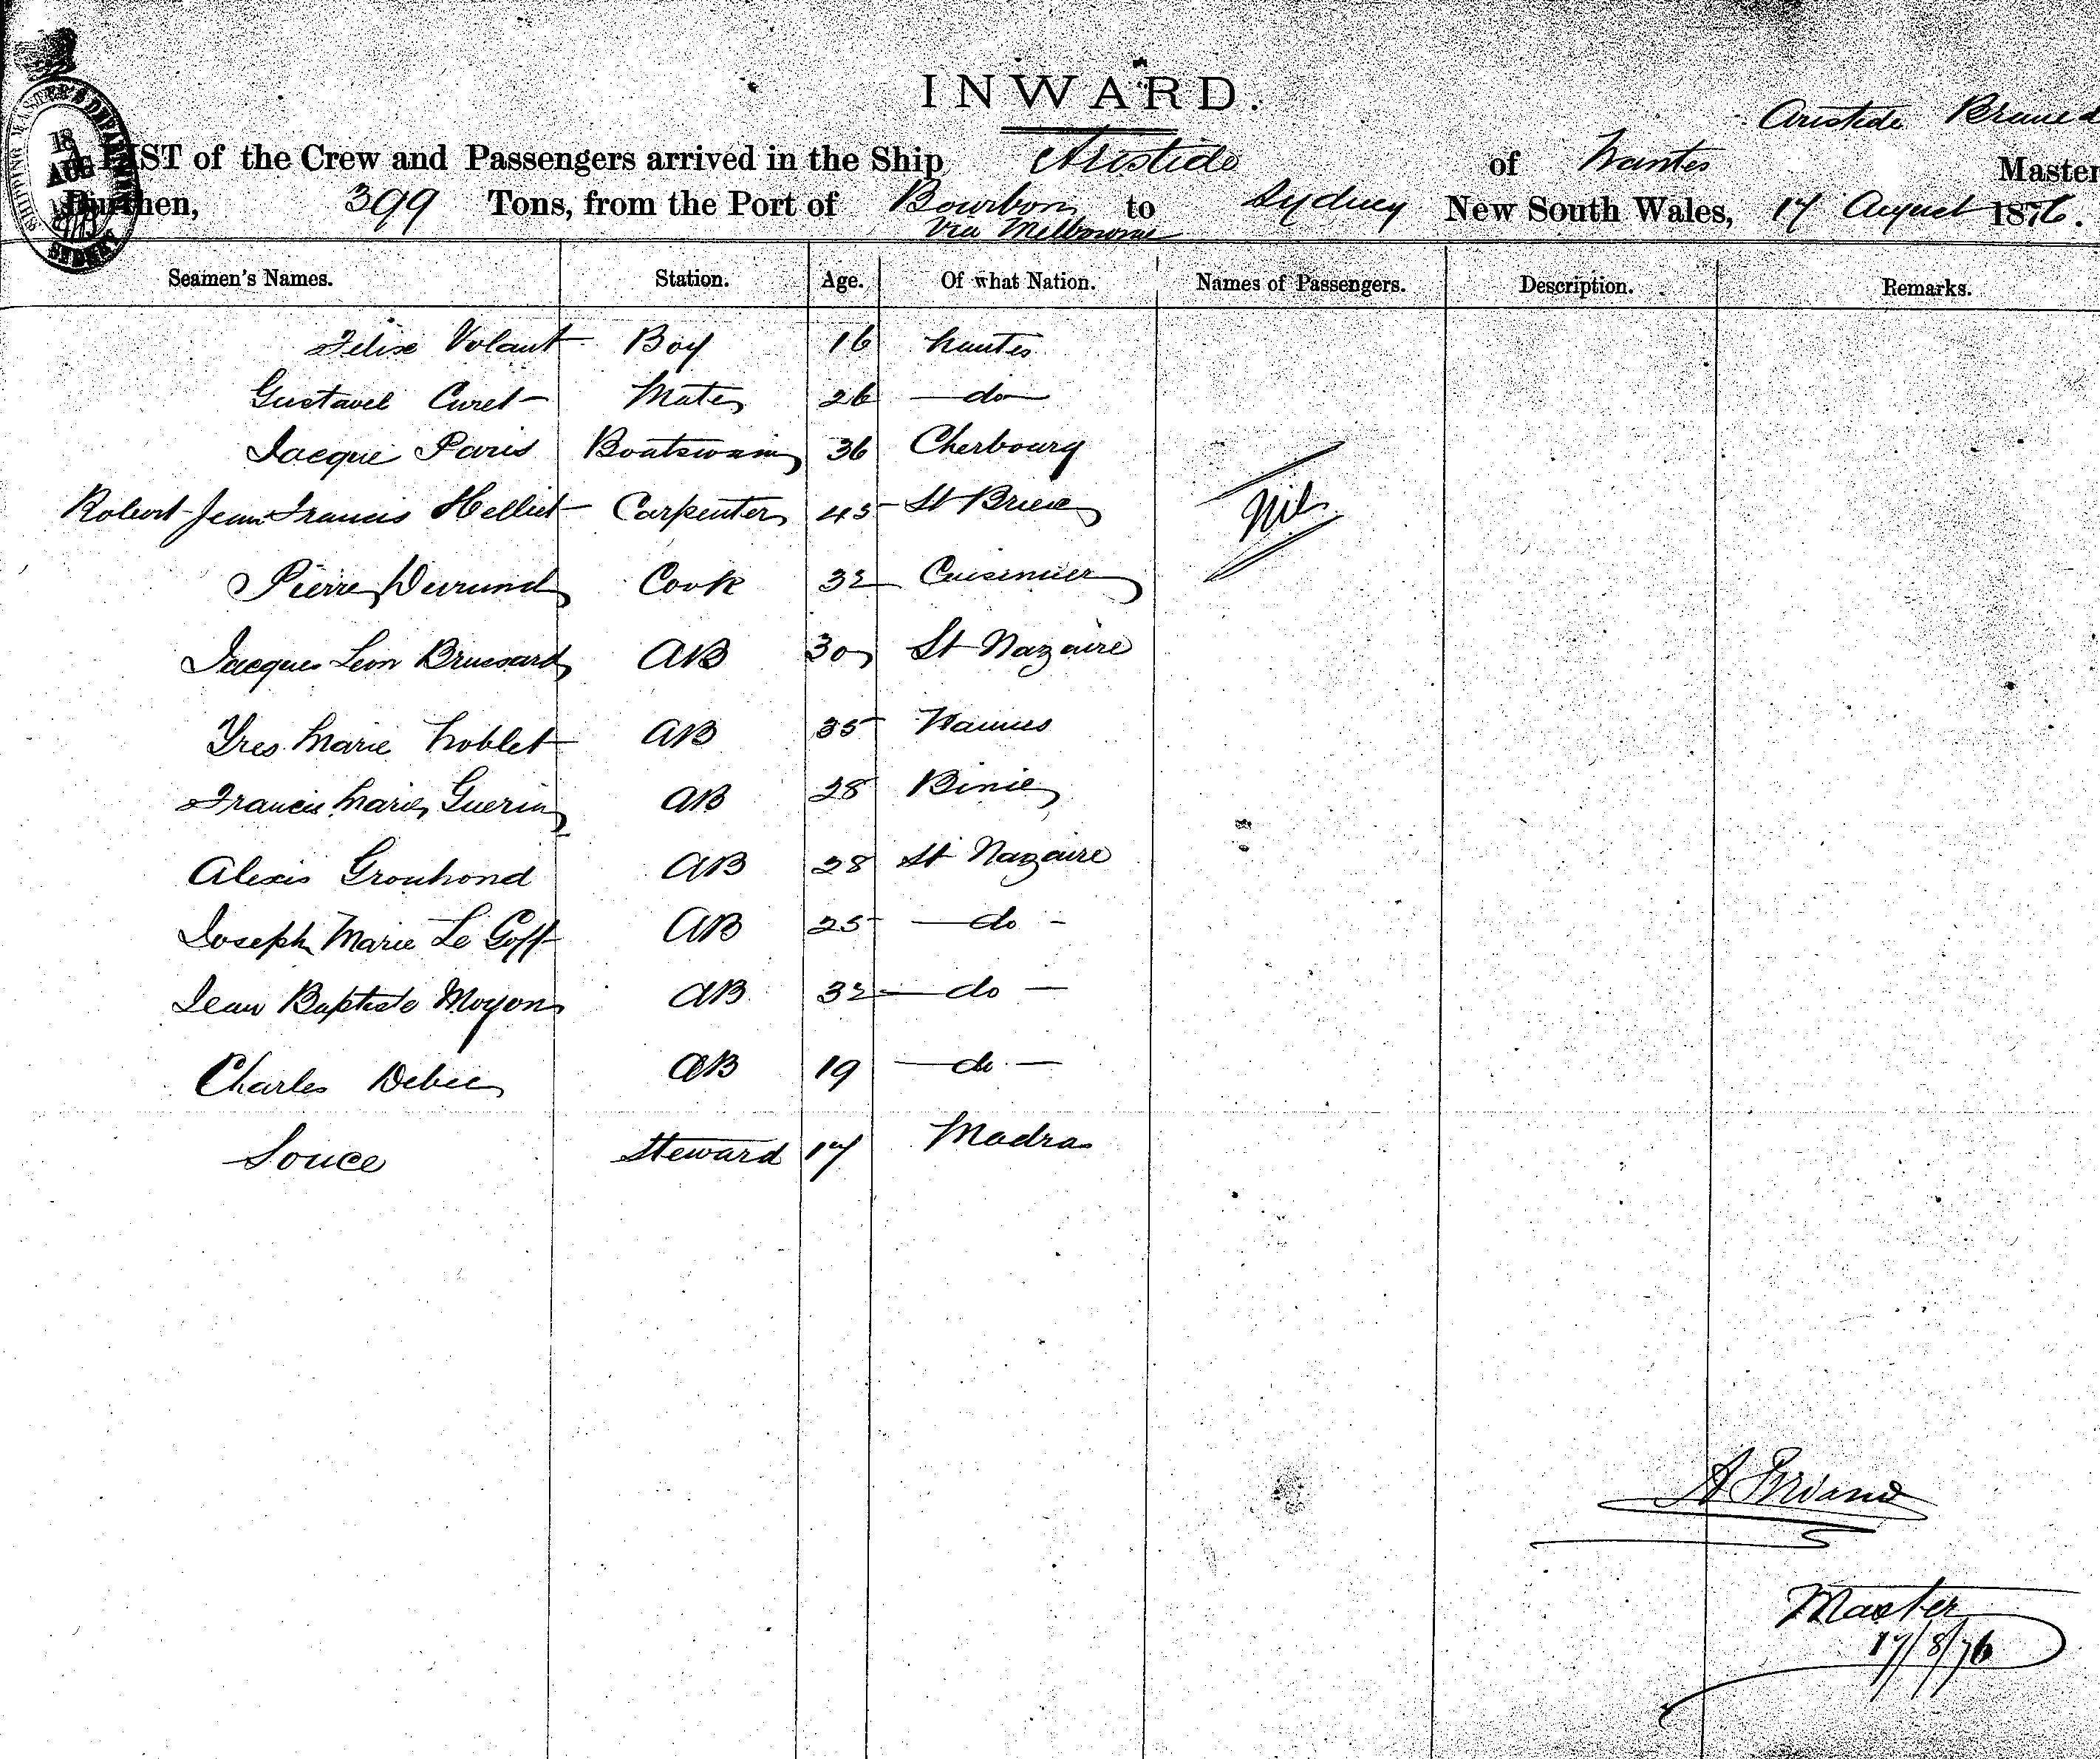 INWARD.
Aristide
LIST of the Crew and Passengers arrived in the Ship Aristide of Nantes Master
Burthen, 399 Tons, from the Port of Bourbon to Sydney New South Wales, 17 August 1876.
via Melbourne
SHIPPING MASTER'S DEPARTMENT
18
AUG
SYDNEY
Seamen's Names. Station. Age. Of what Nation. Names of Passengers. Description. Remarks.
Felix Volant Boy 16 Nantes
Gustave Curet Mate 26 do
Jacque Paris Boatswain 36 Cherbourg
Robert Jean Francis Helliet Carpenter 45 St Brieux
Nil
Pierre Durund Cook 32 Cuisinnier
Jacques Leon Brussard AB 30 St Nazaire
Yves Marie Noblet AB 35
Francis Marie Guerin AB 28 Binic
Alexis Grouhond AB 28 St Nazaire
Joseph Marie Le Goff AB 25 do
Jean Baptiste Moyon AB 32 do
Charles Debec AB 19 do
Souce Steward 17 Madras
A Briand
Master
17/8/76